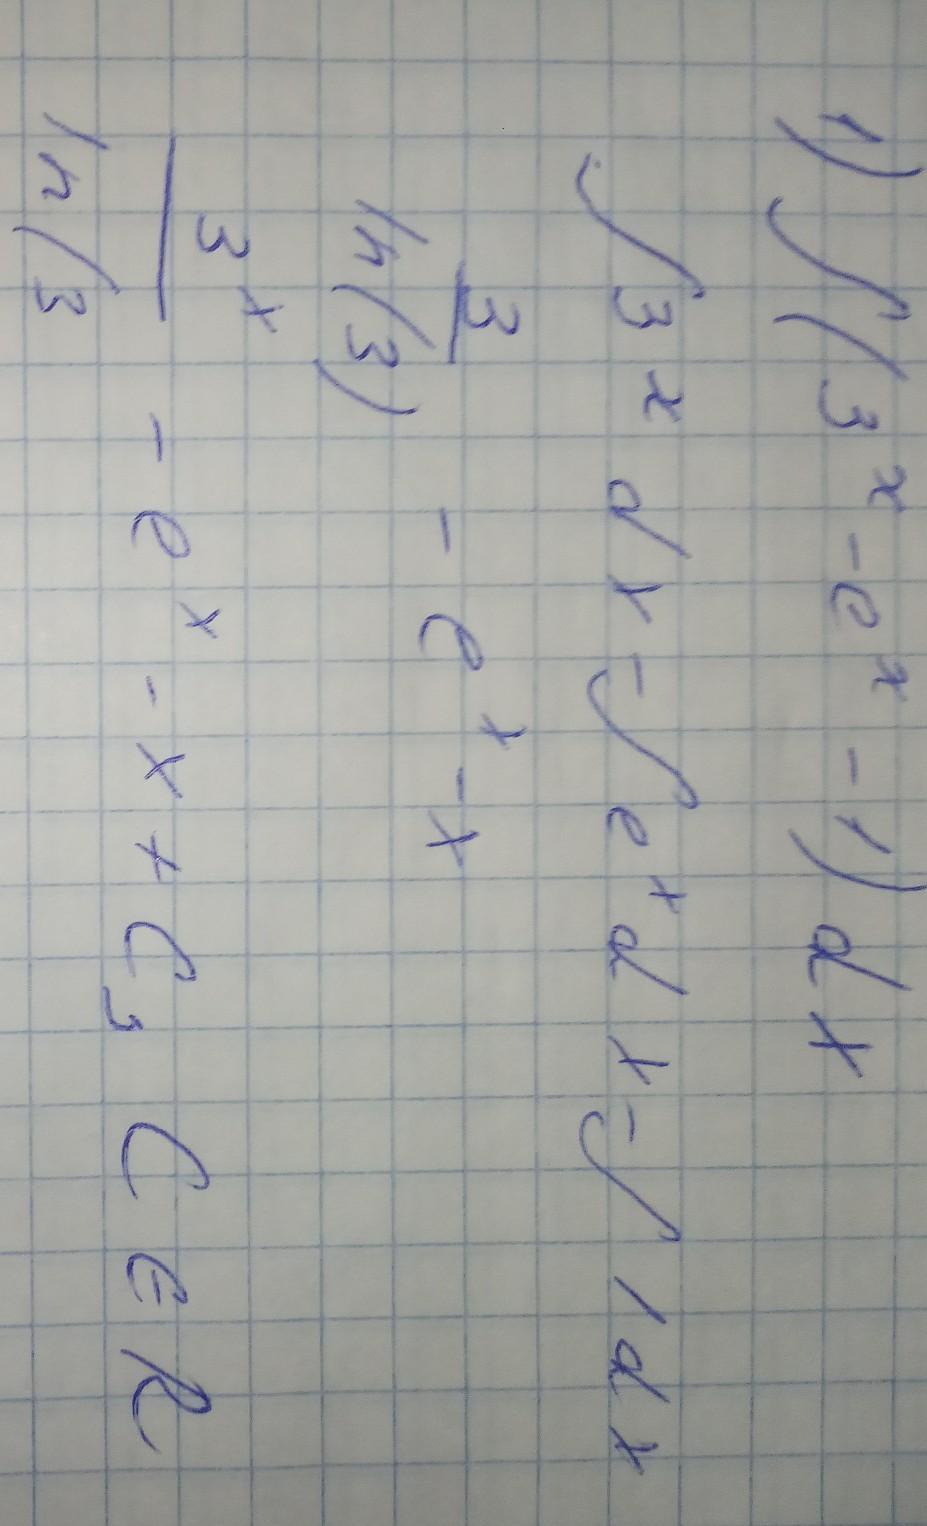 1) ∫(3^x - e^x - 1) dx
∫3^x dx - ∫e^x dx - ∫1dx
3/ln(3) - e^x - x
3^x/ln(3 - e^x - x + C, C ∈ R